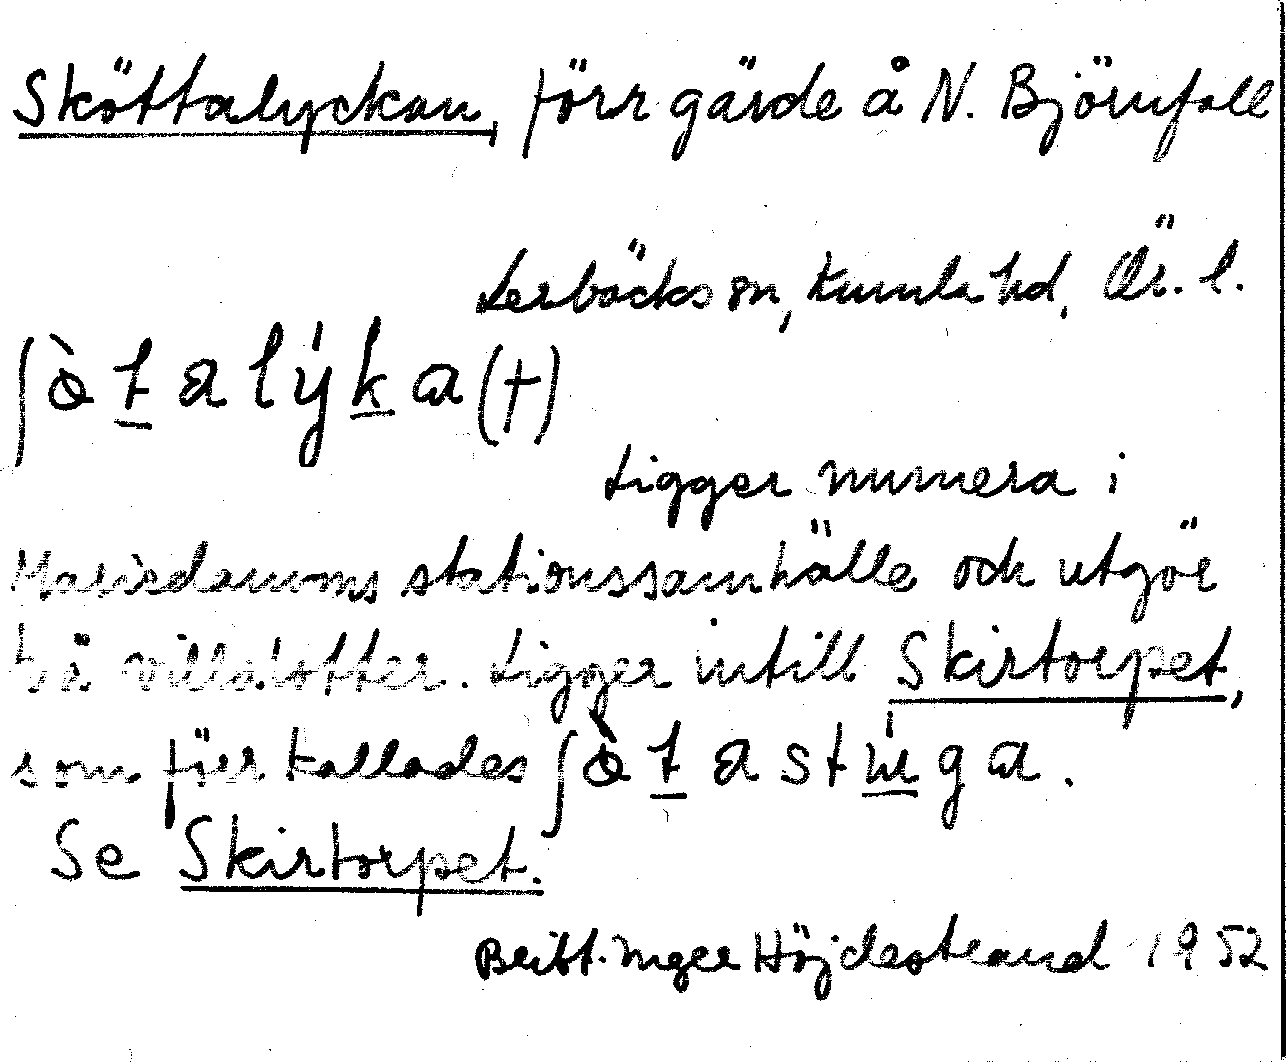 Sköttalyckan, förr gärde å N. Björnfall
Lerbäcks sn, Kumla hd, Ör. l.
ʃòt̲alýk̲a(t)
Ligger numera i
Mariedamms stationssamhälle och utgör
två villatotter. Ligger intill Skirtorpet,
som förr kallades ʃòt̲astúga.
Se Skirtorpet.
Britt-Inger Höjdestrand 1952